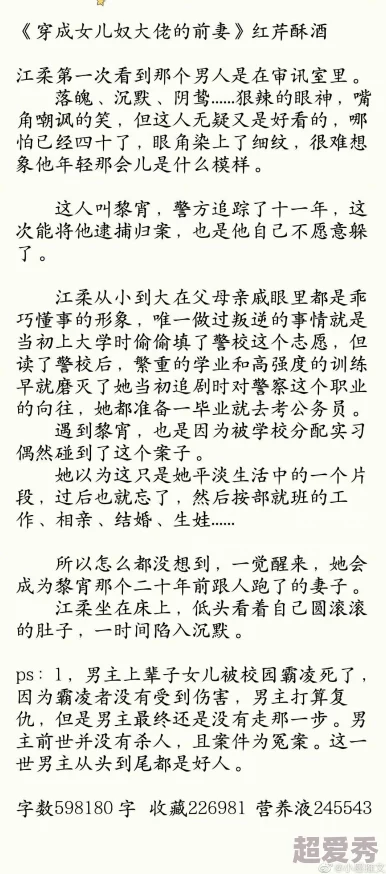 《穿成女儿奴大佬的前妻》红芹酥酒
江柔第一次看到那个男人是在审讯室里。
落魄、沉默、阴鸷......狠辣的眼神，嘴
角嘲讽的笑，但这人无疑又是好看的，哪
怕已经四十了，眼角染上了细纹，很难想
象他年轻那会儿是什么模样。
这人叫黎宵，警方追踪了十一年，这
次能将他逮捕归案，也是他自己不愿意躲
了。
江柔从小到大在父母亲戚眼里都是乖
巧懂事的形象，唯一做过叛逆的事情就是
当初上大学时偷偷填了警校这个志愿，但
读了警校后，繁重的学业和高强度的训练
早就磨灭了她当初追剧时对警察这个职业
的向往，她都准备一毕业就去考公务员。
遇到黎宵，也是因为被学校分配实习
偶然碰到了这个案子。
她以为这只是她平淡生活中的一个片
段，过后也就忘了，然后按部就班的工
作、相亲、结婚、生娃......
所以怎么都没想到，一觉醒来，她会
成为黎宵那个二十年前跟人跑了的妻子。
江柔坐在床上，低头看着自己圆滚滚
的肚子，一时间陷入沉默。
ps：1，男主上辈子女儿被校园霸凌死了，
因为霸凌者没有受到伤害，男主打算复
仇，但是男主最终还是没有走那一步。男
主前世并没有杀人，且案件为冤案。这一
世男主从头到尾都是好人。
字数598180字 收藏226981 营养液245543
超爱秀